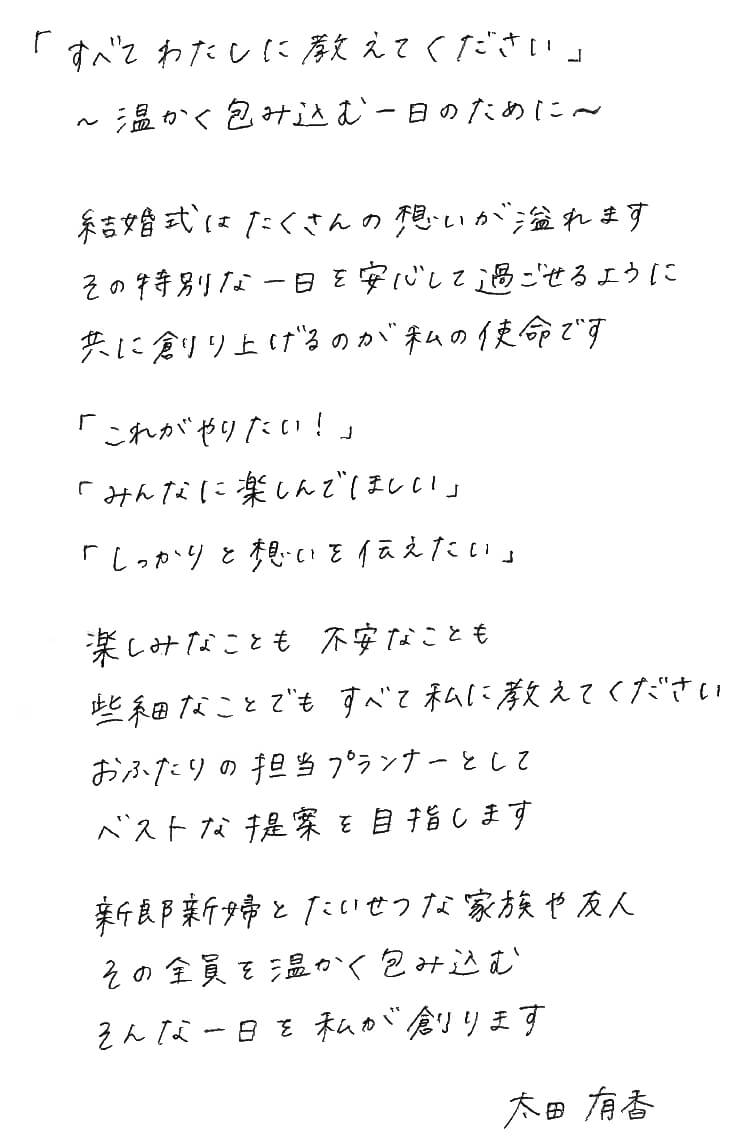 「すべてわたしに教えてください」
～温かく包み込む一日のために～
結婚式はたくさんの想いが溢れます
その特別な一日を安心して過ごせるように
共に創り上げるのが私の使命です
「これがやりたい！」
「みんなに楽しんでほしい」
「しっかりと想いを伝えたい」
楽しみなことも 不安なことも
些細なことでも すべて私に教えてください
おふたりの担当プランナーとして
ベストな提案を目指します
新郎新婦とたいせつな家族や友人
その全員を温かく包み込む
そんな一日を私が創ります
太田 有香